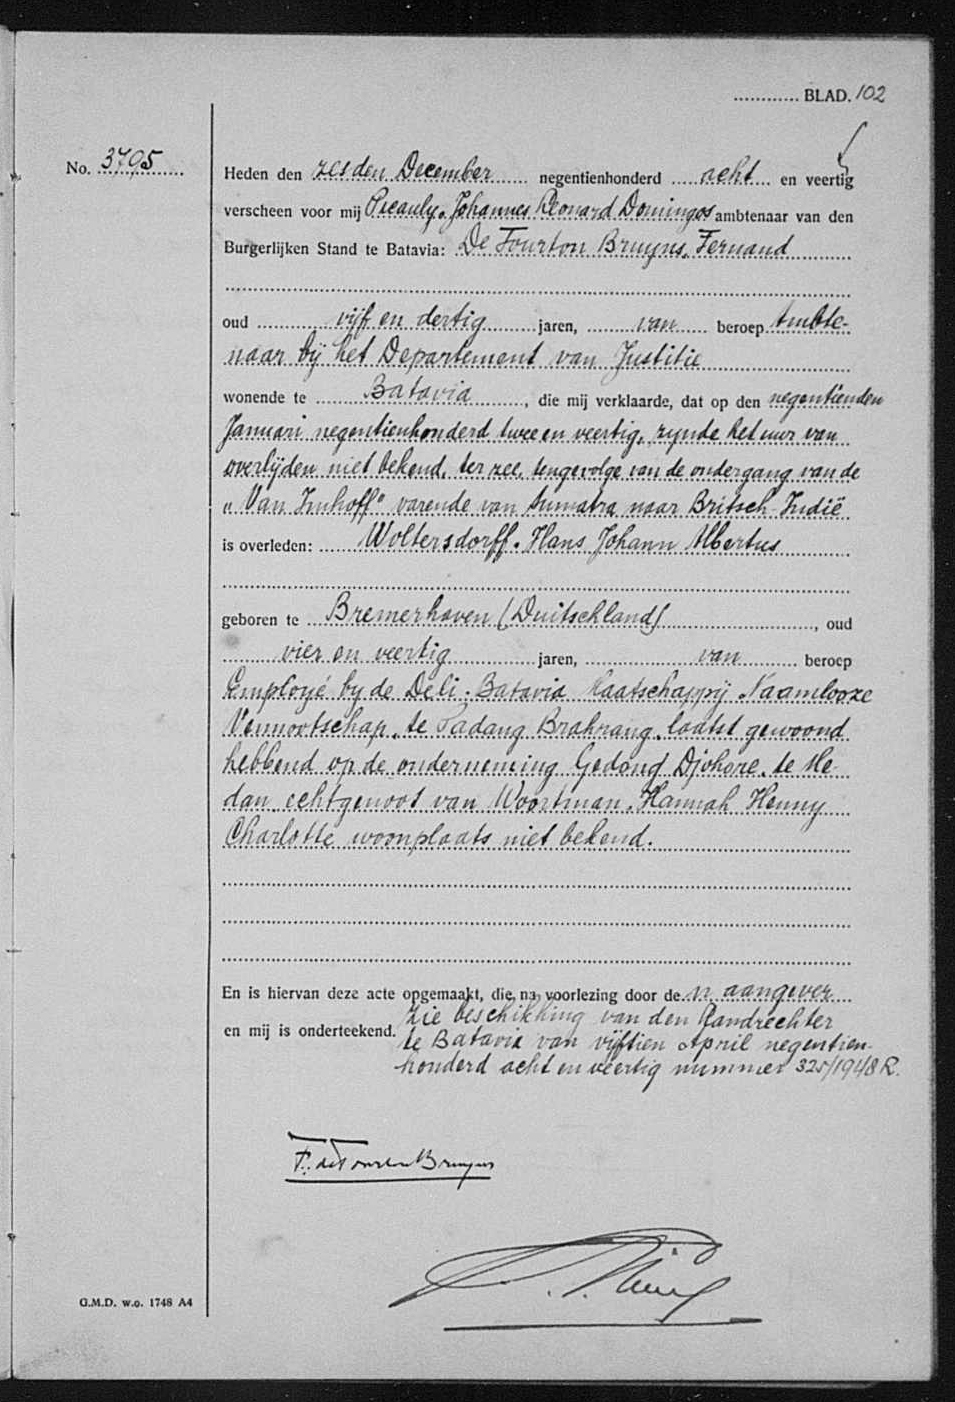 BLAD. 102
No. 3795
Heden den zesden December negentienhonderd acht en veertig
verscheen voor mij Picauly, Johannes Leonard Domingos ambtenaar van den
Burgerlijken Stand te Batavia: De Fourton Bruyns, Fernand
oud vijf en dertig jaren, van beroep Ambte-
naar bij het Departement van Justitie
wonende te Batavia, die mij verklaarde, dat op den negentienden
Januari negentienhonderd twee en veertig, zynde het uur van
overlyden niet bekend, ter zee, tengevolge van de ondergang van de
„Van Imhoff" varende van Sumatra naar Britsch-Indië
is overleden: Woltersdorff, Hans Johann Albertus
geboren te Bremerhaven (Duitschland), oud
vier en veertig jaren, van beroep
Employé by de Deli-Batavia Maatschappij Naamlooze
Vennootschap, te Padang Brahrang, laatst gewoond
hebbend op de onderneming Gedong Djohore, te Me-
dan echtgenoot van Woortman, Hannah Henny
Charlotte woonplaats niet bekend.
En is hiervan deze acte opgemaakt, die, na voorlezing door de n aangever
en mij is onderteekend. zie beschikking van den Landrechter
te Batavia van vijftien April negentien-
honderd acht en veertig nummer 325/1948 R.
F. de Fourton Bruyns
G.M.D. w.o. 1748 A4